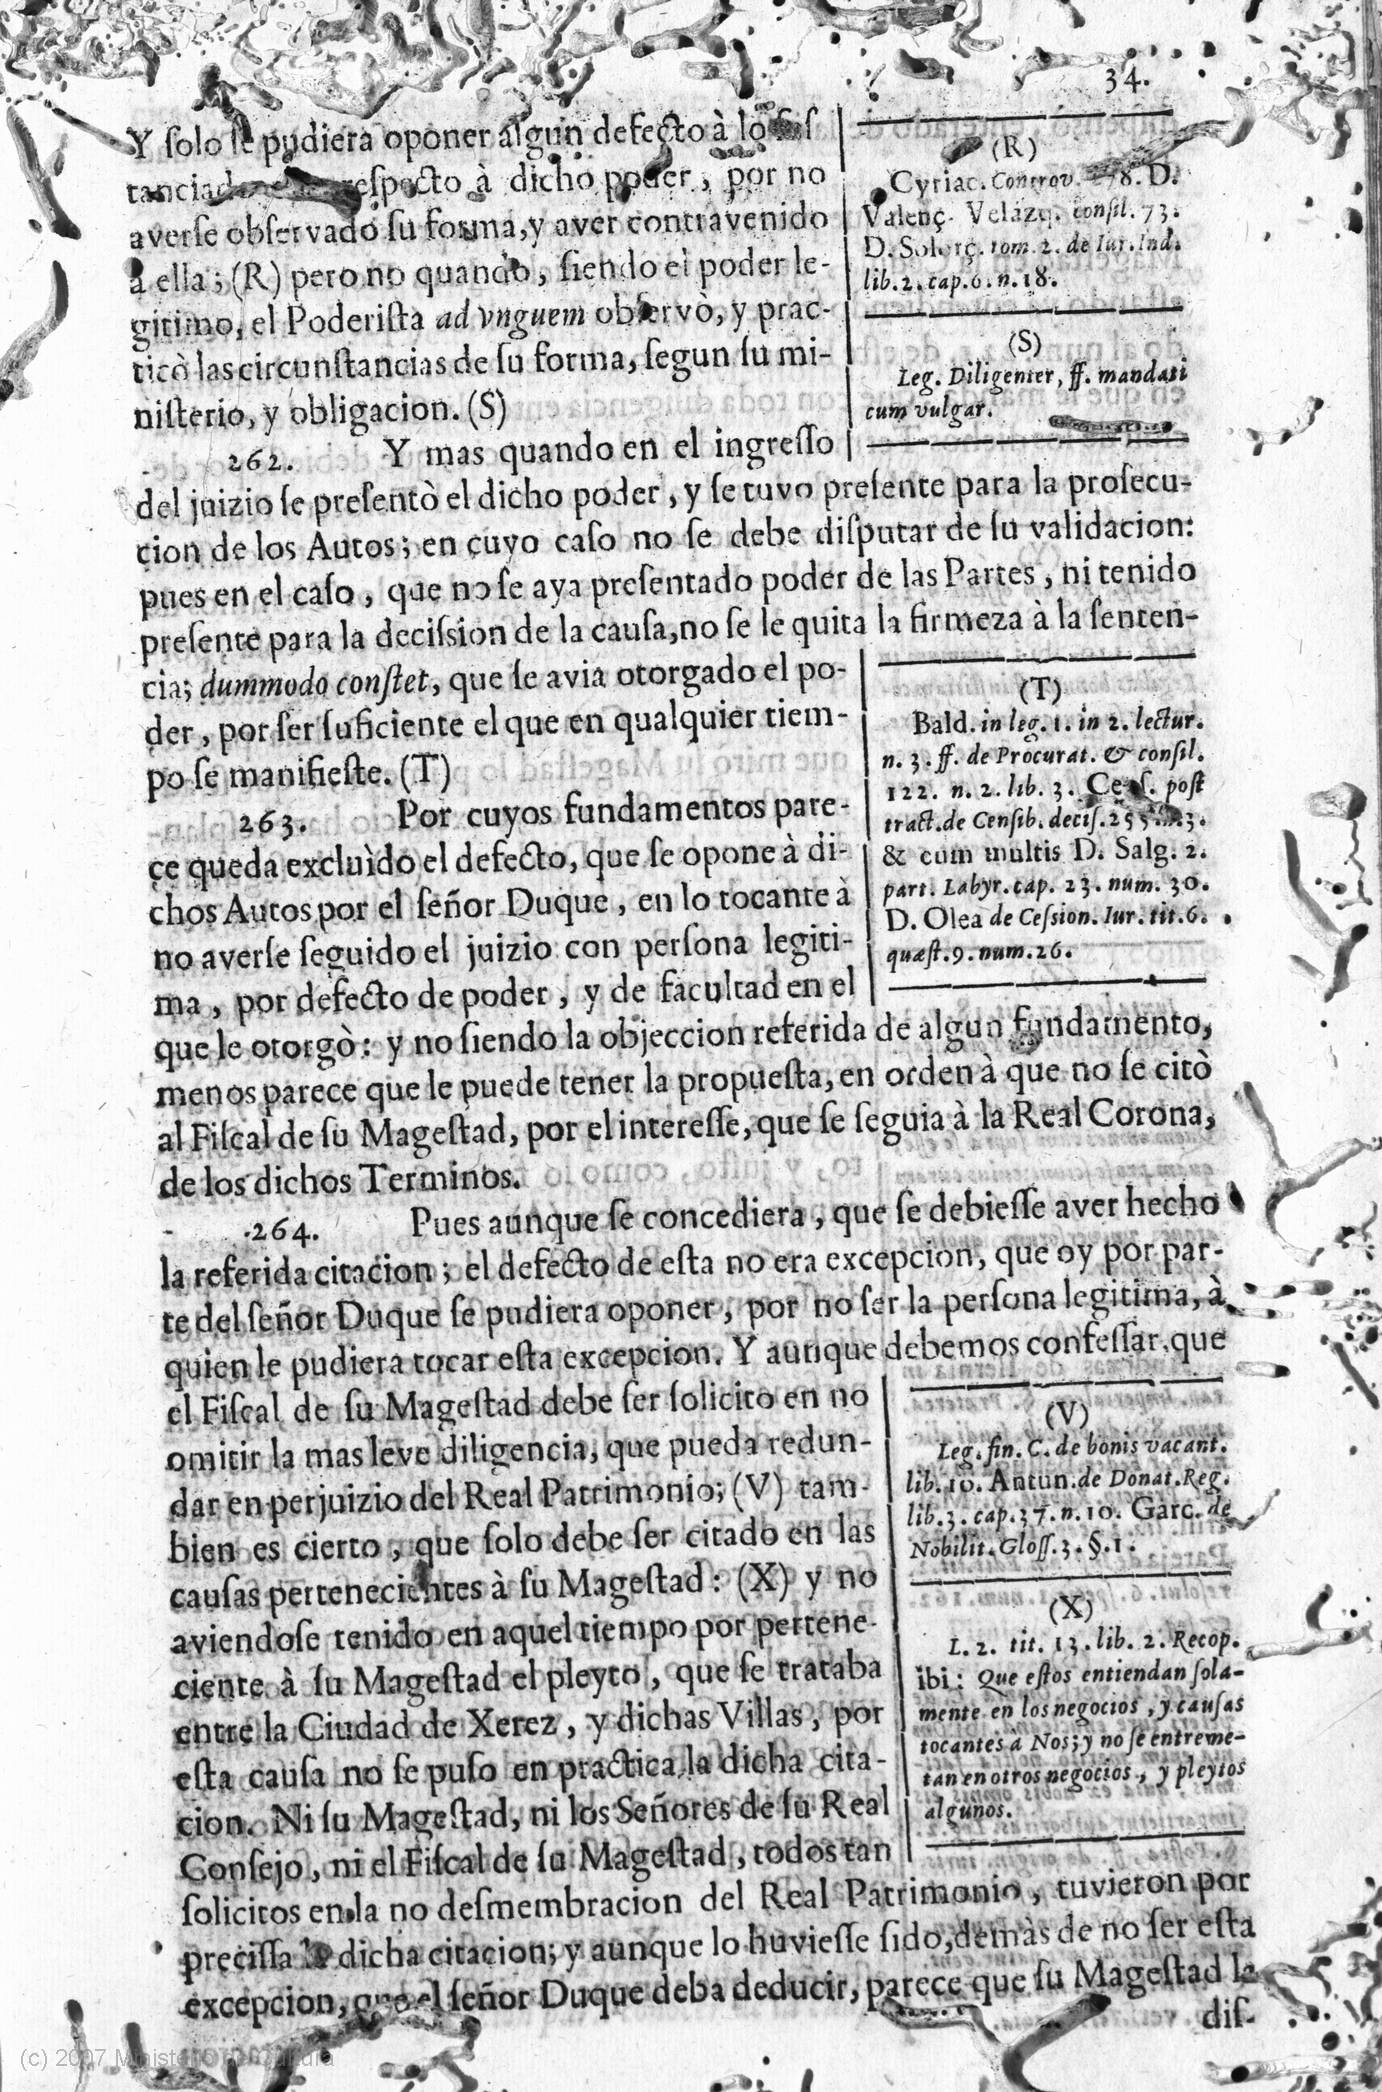 34.
Y ſolo ſe pudiera oponer algun defecto à lo ſuſ
tanciado respecto à dicho poder, por no
averſe obſervado ſu forma, y aver contravenido
à ella; (R) pero no quando, ſiendo el poder le-
gitimo, el Poderiſta ad vnguem obſervò, y prac-
ticò las circunſtancias de ſu forma, ſegun ſu mi-
niſterio, y obligacion. (S)
(R)
Cyriac. Controv. 278. D.
Valenç. Velazq. conſil. 73.
D. Solorç. tom. 2. de Iur. Ind.
lib. 2. cap. 6. n. 18.
(S)
Leg. Diligenter, ff. mandati
cum vulgar.
262. Y mas quando en el ingreſſo
del juizio ſe preſentò el dicho poder, y ſe tuvo preſente para la proſecu-
cion de los Autos; en cuyo caſo no ſe debe diſputar de ſu validacion:
pues en el caſo, que no ſe aya preſentado poder de las Partes, ni tenido
preſente para la deciſsion de la cauſa, no ſe le quita la firmeza à la ſenten-
cia; dummodo conſtet, que ſe avia otorgado el po-
der, por ſer ſuficiente el que en qualquier tiem-
po ſe manifieſte. (T)
263. Por cuyos fundamentos pare-
ce queda excluìdo el defecto, que ſe opone à di-
chos Autos por el ſeñor Duque, en lo tocante à
no averſe ſeguido el juizio con perſona legiti-
ma, por defecto de poder, y de facultad en el
(T)
Bald. in leg. 1. in 2. lectur.
n. 3. ff. de Procurat. & conſil.
122. n. 2. lib. 3. poſt
tract. de Cenſib. deciſ. 3.
& cum multis D. Salg. 2.
part. Labyr. cap. 23. num. 30.
D. Olea de Ceſsion. Iur. tit. 6.
quæſt. 9. num. 26.
que le otorgò: y no ſiendo la objeccion referida de algun fundamento,
menos parece que le puede tener la propueſta, en orden à que no ſe citò
al Fiſcal de ſu Mageſtad, por el intereſſe, que ſe ſeguia à la Real Corona,
de los dichos Terminos.
264. Pues aunque ſe concediera, que ſe debieſſe aver hecho
la referida citacion; el defecto de eſta no era excepcion, que oy por par-
te del ſeñor Duque ſe pudiera oponer, por no ſer la perſona legitima, à
quien le pudiera tocar eſta excepcion. Y aunque debemos confeſſar, que
el Fiſcal de ſu Mageſtad debe ſer ſolicito en no
omitir la mas leve diligencia, que pueda redun-
dar en perjuizio del Real Patrimonio; (V) tam-
bien es cierto, que ſolo debe ſer citado en las
cauſas pertenecientes à ſu Mageſtad: (X) y no
aviendoſe tenido en aquel tiempo por pertene-
ciente à ſu Mageſtad el pleyto, que ſe trataba
entre la Ciudad de Xerez, y dichas Villas, por
eſta cauſa no ſe puſo en practica la dicha cita-
cion. Ni ſu Mageſtad, ni los Señores de ſu Real
Conſejo, ni el Fiſcal de ſu Mageſtad, todos tan
(V)
Leg. fin. C. de bonis vacant.
lib. 10. Antun. de Donat. Reg.
lib. 3. cap. 37. n. 10. Garc. de
Nobilit. Gloſſ. 3. §. 1.
(X)
L. 2. tit. 13. lib. 2. Recop.
ibi: Que eſtos entiendan ſola-
mente en los negocios, y cauſas
tocantes à Nos; y no ſe entreme-
tan en otros negocios, y pleytos
algunos.
ſolicitos en la no deſmembracion del Real Patrimonio, tuvieron por
preciſſa la dicha citacion; y aunque lo huvieſſe ſido, demàs de no ſer eſta
excepcion, que el ſeñor Duque deba deducir, parece que ſu Mageſtad la
diſ-
(c) 2007 Ministerio de Cultura